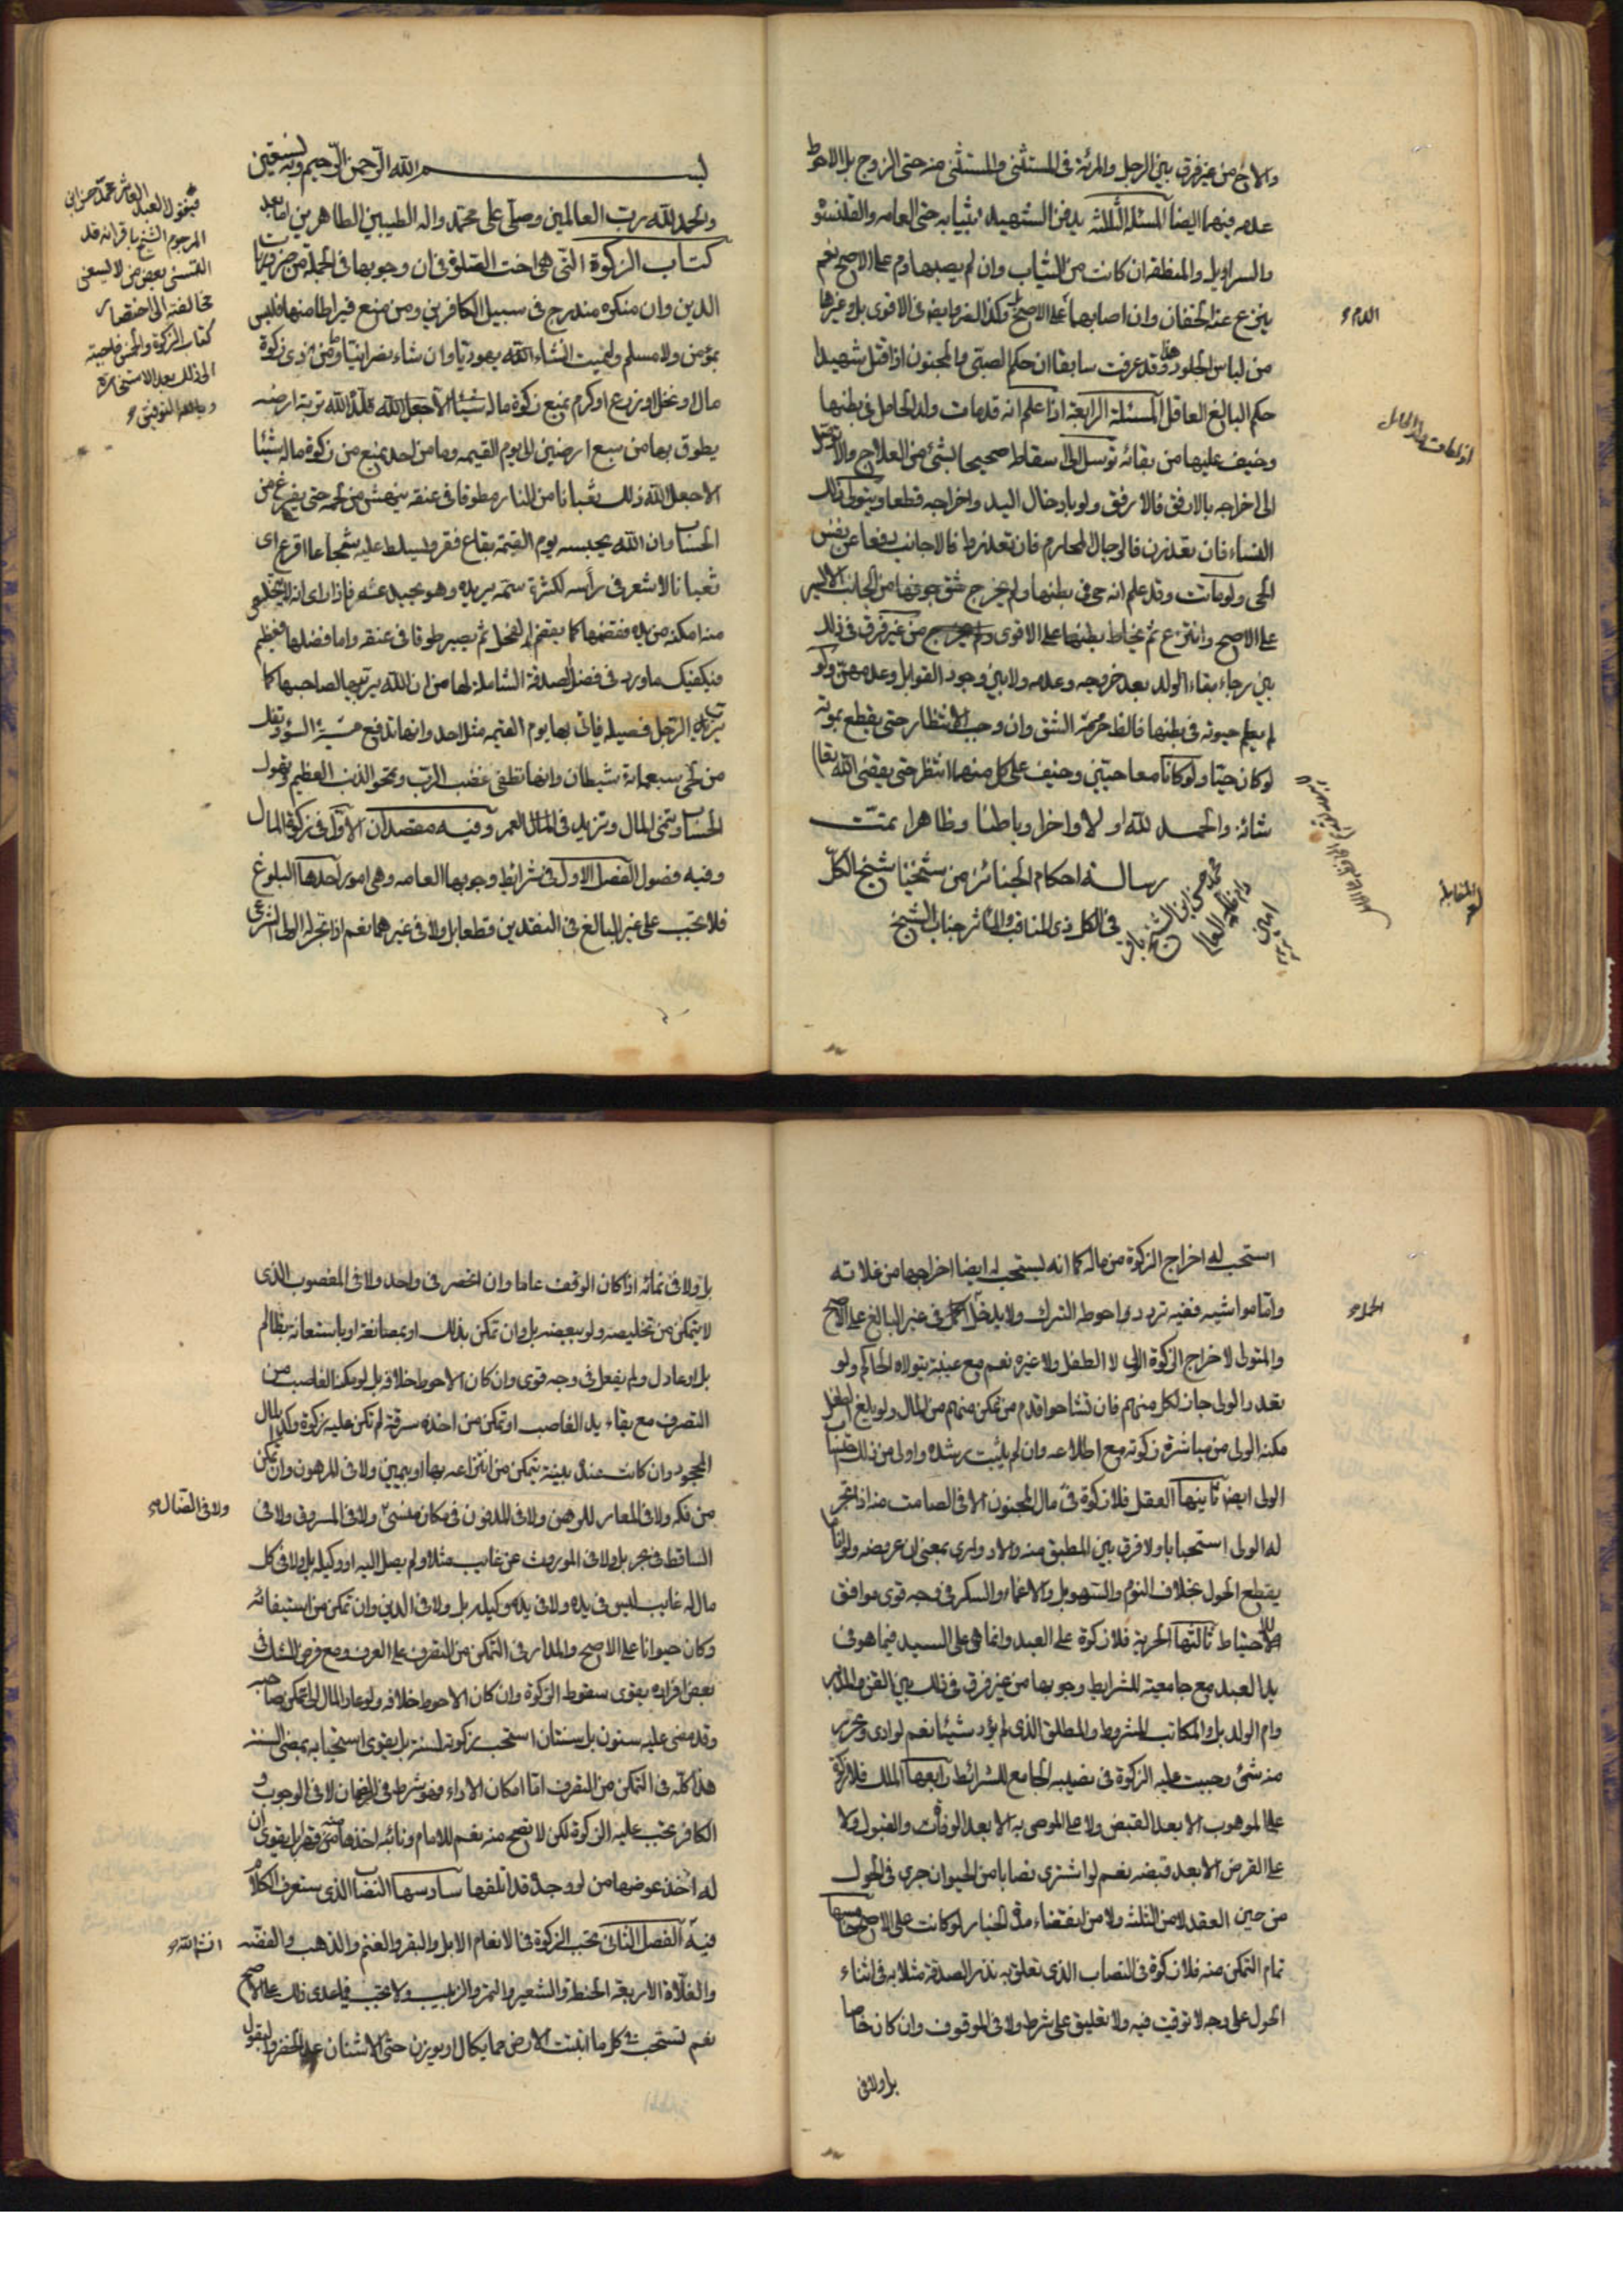 والاخ من غير فرق بين الرجل والمرئة في المستثنى والمستثنى منه حتى الزوج بل الاحوط
عدمه فيهما ايضا المسئلة الثالثة يدفن الشهيد بثيابه حتى العامه والقلنسوة
والسراويل والمنطقه ان كانت من الثياب وان لم يصبها دم على الاصح نعم
الدم
ينزع عنه الخفان وان اصابهما على الاصح وكذا الفرو ايضا في الاقوى بل وغيرها
من لباس الجلود هذا وقد عرفت سابقا ان حكم الصبي والمجنون اذا قتل شهيدا
حكم البالغ العاقل المسئلة الرابعة اذا علم انه قد مات ولد الحامل في بطنها
اذا مات ولد الحامل
وخيف عليها من بقائه توسل الى اسقاطه صحيحا بشئ من العلاج والا توصل
الى اخراجه بالارفق فالارفق ولو بادخال اليد واخراجه قطعا ويتولى ذلك
النساء فان تعذرن فالرجال المحارم فان تعذروا فالاجانب دفعا عن نفس
الحي ولو ماتت وقد علم انه حي في بطنها ولم يخرج شق جوفها من الجانب الايسر
على الاصح وانتزع ثم يخاط بطنها على الاقوى من غير فرق في ذلك
بين رجاء بقاء الولد بعد خروجه وعدمه ولا بين وجود القوابل وعدمهن ولو
لم يعلم حيوته في بطنها فالظ حرمة الشق وان وجب الانتظار حتى يقطع بموته
لو كان حيا ولو كانا معا حيين وخيف على كل منهما انتظر حتى يقضي الله تعالى
شانه والحمد لله اولا واخرا وباطنا وظاهرا تمت
رسالة احكام الجنائز من شيخنا شيخ الكل
في الكل ذي المناقب والمآثر جناب الشيخ
محمد حسن بن الشيخ باقر
دام ظله العالي
امين
بسم الله الرحمن الرحيم وبه نستعين
والحمد لله رب العالمين وصلى على محمد واله الطيبين الطاهرين اما بعد
فيقول العبد العاثر محمد حسن ابن
المرحوم الشيخ باقر انه قد
التمسني بعض من لا يسعني
مخالفته الى اختصار
كتاب الزكوة والخمس فاجبته
الى ذلك بعد الاستخارة
وبالله التوفيق
كتاب الزكوة التي هي اخت الصلوة في ان وجوبها في الجملة من ضروريات
الدين وان منكره مندرج في سبيل الكافرين ومن منع قيراطا منها فليس
بمؤمن ولا مسلم وليمت انشاء الله يهوديا وان شاء نصرانيا وما من ذي زكوة
مال او نخل او زرع او كرم يمنع زكوة ماله شيئا الا جعل الله قلده الله تربة ارضه
يطوق بها من سبع ارضين الى يوم القيمه وما من احد يمنع من زكوة ماله شيئا
الا جعل الله ذلك ثعبانا من النار مطوقا في عنقه ينهش من لحمه حتى يفرغ من
الحساب وان الله يحبسه يوم القيمة بقاع قفر ويسلط عليه شجاعا اقرع اي
ثعبانا لا شعر في رأسه لكثرة سمه يريده وهو يحيد عنه فاذا راى انه لا يتخلص
منه امكنه من يده فقضمها كما يقضم الفحل ثم يصير طوقا في عنقه واما فضلها فعظيم
فيكفيك ما ورد في فضل الصدقة الشاملة لها من ان الله يربيها لصاحبها كما
يربي الرجل فصيله فياتي بها يوم القيمه مثل احد وانها تدفع ميتة السوء وتفك
من لحى سبعمائة شيطان وانها تطفى غضب الرب وتمحو الذنب العظيم وتهون
الحساب وتنمى المال وتزيد في العمر وفيه مقصدان الاول في زكوة المال
وفيه فصول الفصل الاول في شرائط وجوبها العامه وهي امور احدها البلوغ
فلا تجب على غير البالغ في النقدين قطعا بل ولا في غيرهما نعم اذا تجر له الولي الشرعي
استحب له اخراج الزكوة من ماله كما انه يستحب له ايضا اخراجها من غلاته
واما مواشيه ففيه تردد واحوطه الترك ولا يدخل الحمل في غير البالغ على الاصح
الحمل
والمتولى لاخراج الزكوة الولي لا الطفل ولا غيره نعم مع غيبته يتولاه الحاكم ولو
تعدد الولي جاز لكل منهم فان تشاحوا قدم من تمكن منهم من المال ولو بلغ الطفل
مكنه الولي من مباشرة زكوته مع اطلاعه وان لم يثبت رشده واولى من ذلك
الولي ايضا ثانيها العقل فلا زكوة في مال المجنون الا في الصامت منه اذا تجر
له الولي استحبابا ولا فرق بين المطبق منه والادواري بمعنى ان عروضه ولو انا ما
يقطع الحول بخلاف النوم والسهو بل والاغماء والسكر في وجه قوى موافق
للاحتياط ثالثها الحرية فلا زكوة على العبد وانما هي على السيد فيما هو في
يد العبد مع جامعيته لشرايط وجوبها من غير فرق في ذلك بين القن والمدبر
وام الولد بل والمكاتب المشروط والمطلق الذي لم يؤد شيئا نعم لو ادى وتحرر
منه شئ وجبت عليه الزكوة في نصيبه الجامع للشرائط رابعها الملك فلا زكوة
على الموهوب الا بعد القبض ولا على الموصى به الا بعد الوفات والقبول ولا
على القرض الا بعد قبضه نعم لو اشترى نصابا من الحيوان جرى في الحول
من حين العقد لا من الثلثة ولا من انقضاء مدة الخيار لو كانت على الاصح خامسها
تمام التمكن منه فلا زكوة في النصاب الذي تعلق به نذر الصدقة مثلا به في اثناء
الحول على وجه لا توقيت فيه ولا تعليق على شرط ولا في الموقوف وان كان خاصا
بل ولا في
بل ولا في نمائه اذا كان الوقف عاما وان انحصر في واحد ولا في المغصوب الذي
لا يتمكن من تخليصه ولو ببعضه بل وان تمكن بذلك او بمصانعة او باستعانة بظالم
بل او عادل ولم يفعل في وجه قوى وان كان الاحوط خلافه بل لو مكنه الغاصب من
التصرف مع بقاء يد الغاصب او تمكن من اخذه سرقة لم تكن عليه زكوة وكذا المال
المجحود وان كانت عنده بينة يتمكن من انتزاعه بها او بيمين ولا في المرهون وان تمكن
من فكه ولا في المعار للرهن ولا في المدفون في مكان منسي ولا في المسروق ولا في
ولا في الضال
الساقط في بحر بل ولا في الموروث عن غايب مثلا ولم يصل اليه او وكيله بل ولا في كل
مال له غايب ليس في يده ولا في يد وكيله بل ولا في الدين وان تمكن من استيفائه
وكان حيوانا على الاصح والمدار في التمكن من التصرف على العرف ومع فرض الشك في
بعض افراده يقوى سقوط الزكوة وان كان الاحوط خلافه ولو عاد المال الى تمكن صاحبه
وقد مضى عليه سنون بل سنتان استحب زكوته لسنة بل يقوى استحبابه بمضي السنة
هذا كله في التمكن من التصرف اما امكان الاداء فهو شرط في الضمان لا في الوجوب و
الكافر تجب عليه الزكوة لكن لا تصح منه نعم للامام ونائبه اخذها منه قهرا بل يقوى ان
له اخذ عوضها من لو وجده قد اتلفها سادسها النصاب الذي ستعرف الكلام
فيه الفصل الثاني تجب الزكوة في الانعام الابل والبقر والغنم والذهب والفضه
انشاء الله
والغلات الاربعة الحنطة والشعير والتمر والزبيب ولا تجب فيما عدى ذلك على الاصح
نعم تستحب في كل ما انبتت الارض مما يكال او يوزن حتى الاشنان عدا الخضر والبقول